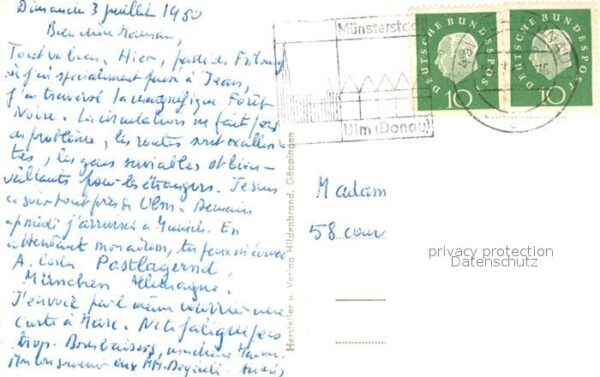 Dimanche 3 juillet 1960
Bien chère maman,
Tout va bien. Hier, passé
j'ai spécialement pensé à Jean,
J'ai traversé la magnifique Forêt
Noire. La circulation ne fait pas
de problèmes, les routes sont excellen
tes, les gens serviables et bien-
veillants pour les étrangers. Je suis
ce soir tout près de Ulm. Demain
après midi j'arriverai à Munich. En
attendant mon retour, tu peux m'écrire
A. Postlagernd,
München Allemagne.
J'envoie par le même courrier une
carte à Marc. Ne te fatigue pas
trop. Bons baisers, ma chère Maman.
Mon bon souvenir aux MM. André
Münstersta
Ulm (Donau)
DEUTSCHE BUNDESPOST
10
DEUTSCHE BUNDESPOST
10
Hersteller u. Verlag Hildenbrand, Göppingen
Madam
58 cour
privacy protection
Datenschutz